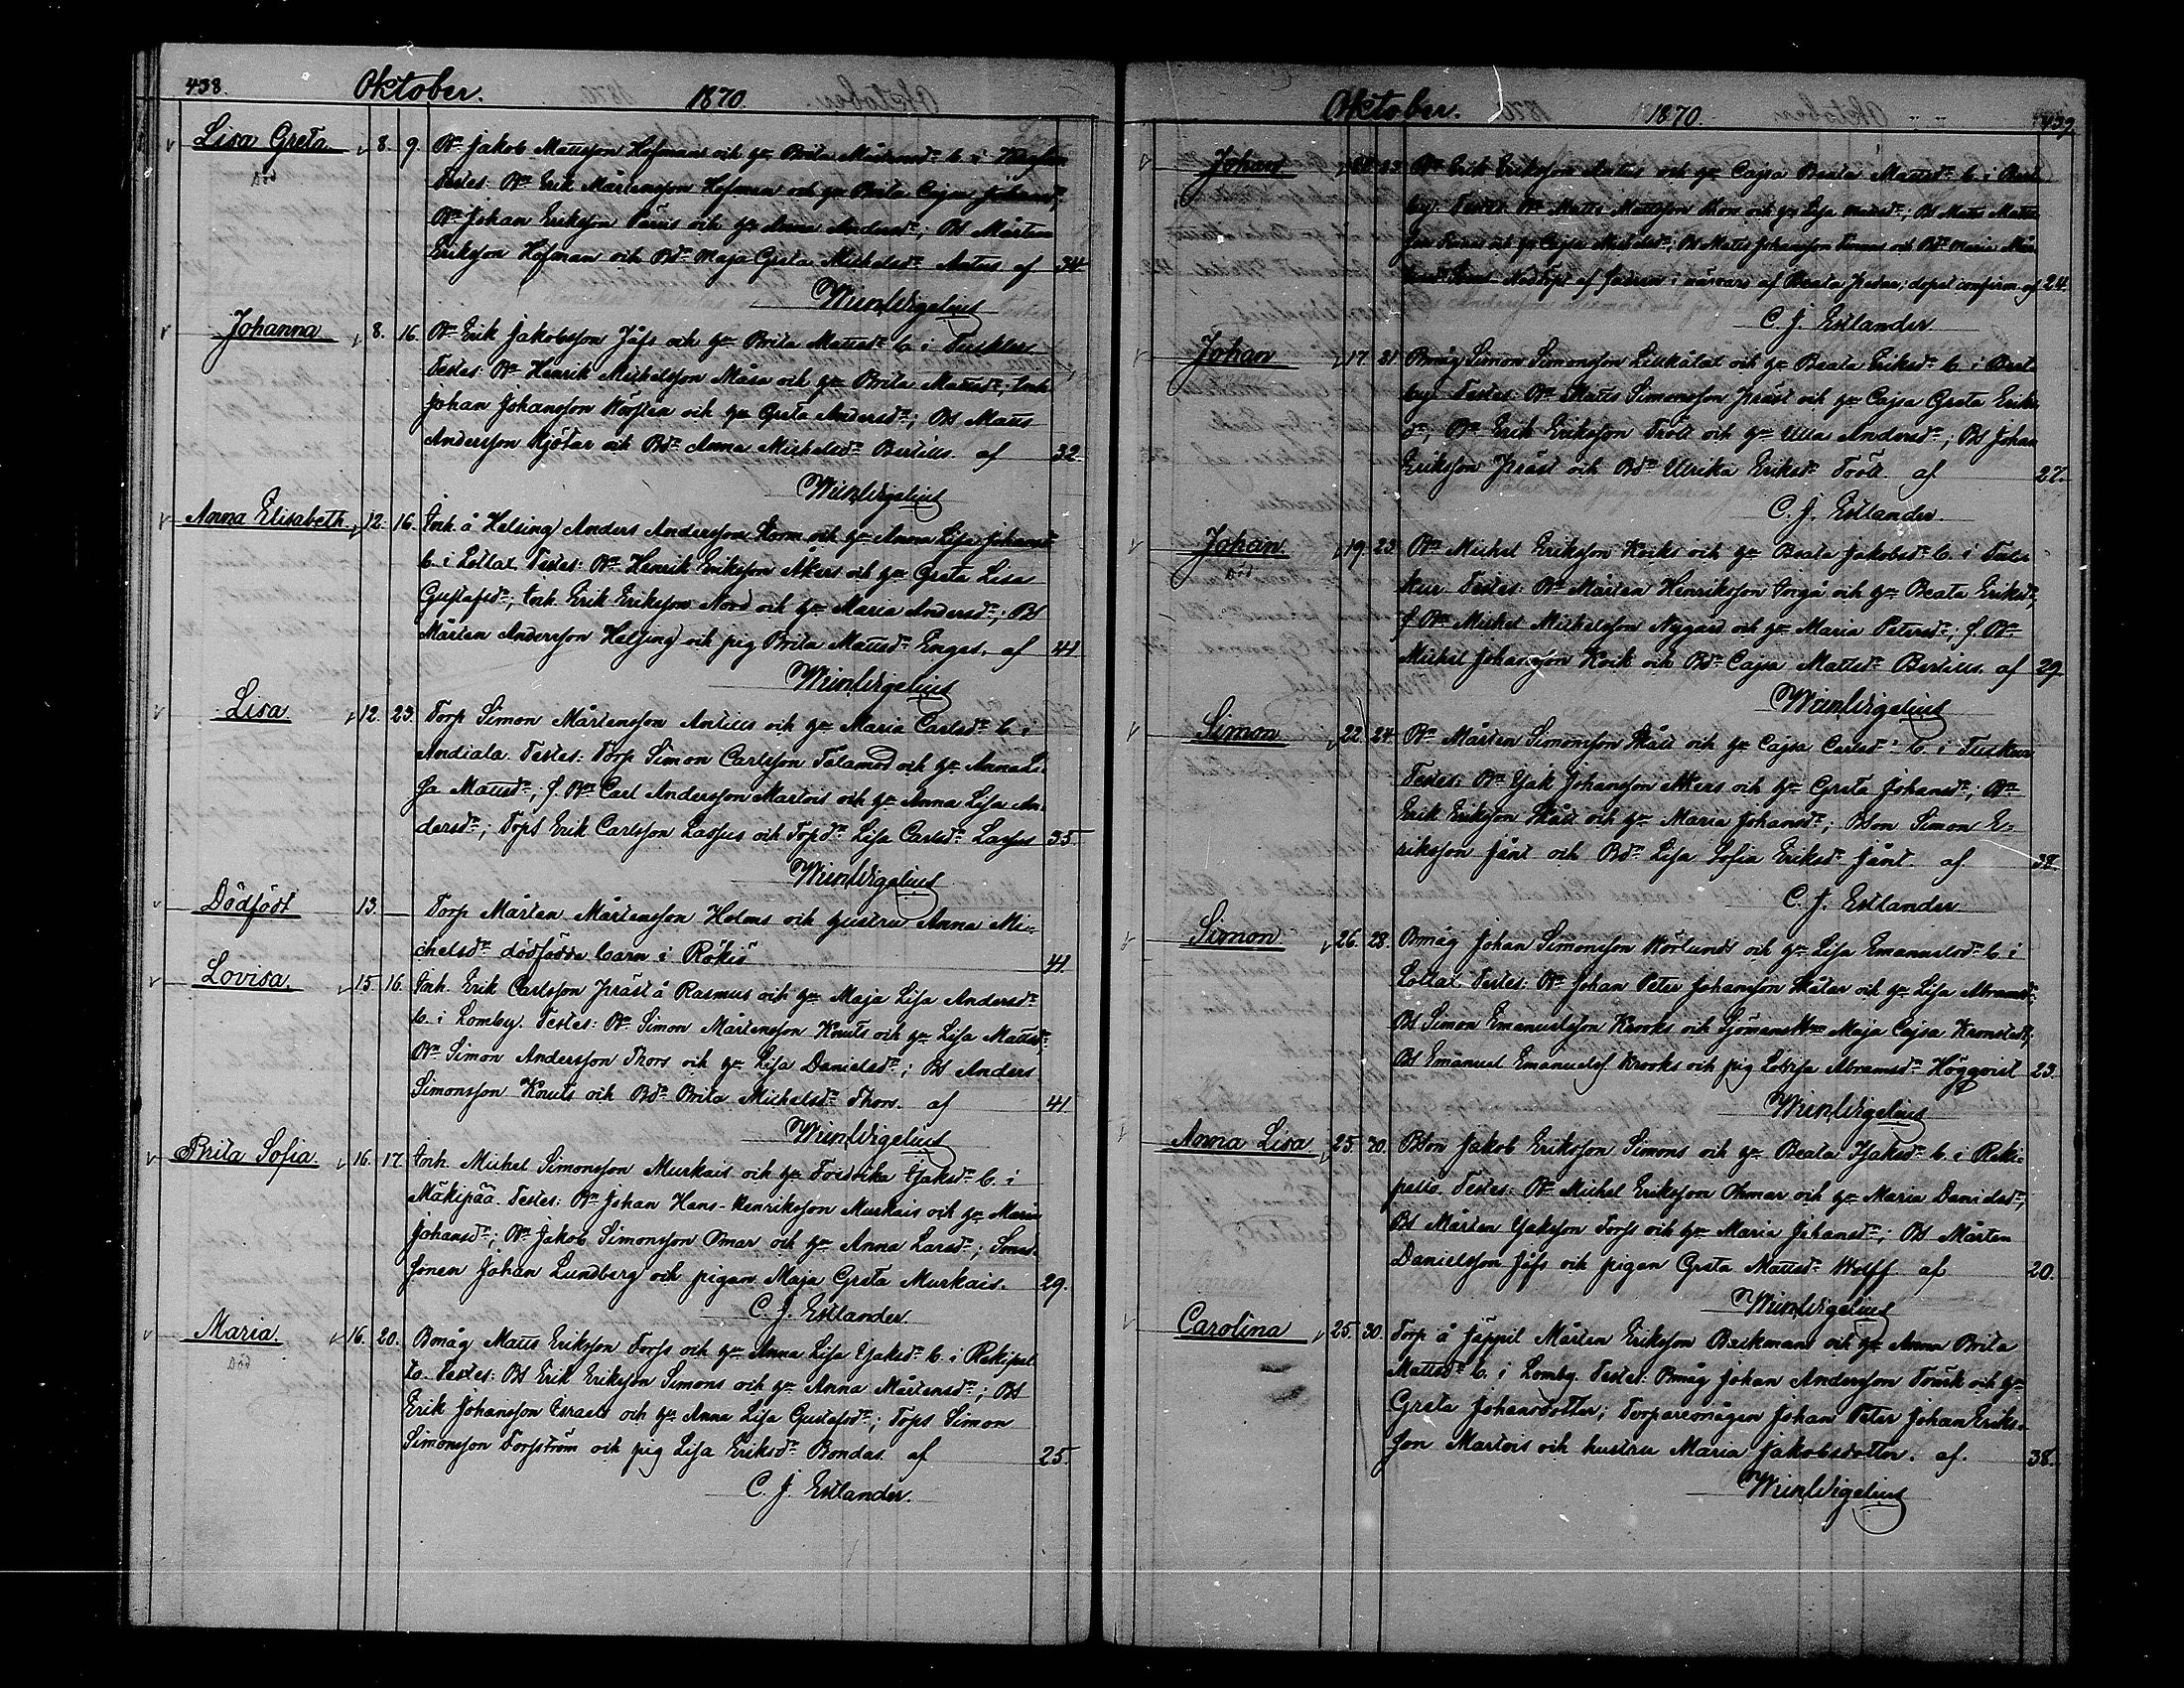 438.
Oktober.
1870.
Lisa Greta. 8. 9. Bn Jakob Mattsson Hofman och hu Brita Mårtensdr b. i
Död
Testes: Bn Erik Mårtensson Hofman och hu Brita Cajsa Johansdr,
Bn Johan Eriksson och hu Anna Andersdr; Bs Mårten
Eriksson Hofman och Bdr Maja Greta Michelsdr Antus af 34.
Wigelius
Johanna 8. 16. Bn Erik Jakobsson Jåfs och hu Brita Mattsdr b. i
Testes: Bn Henrik Michelsson Måsa och hu Brita Mattsdr; Inh
Johan Johansson och hu Greta Andersdr; Bs Matts
Andersson och Bdr Anna Michelsdr Bertills af 32.
Wigelius
Anna Elisabeth 12. 16. Inh. å Helsing Anders Andersson Storm och hu Anna Lisa Johansdr
b. i Lottax. Testes: Bn Henrik Eriksson Åkers och hu Greta Lisa
Gustafsdr; Inh. Erik Eriksson Nord och hu Maria Andersdr; Bs
Mårten Andersson Helsing och pig Brita Mattsdr Enges. af 41
Wigelius
Lisa 12. 23. Torp Simon Mårtensson Antills och hu Maria Carlsdr b. i
Andiala. Testes: Torp Simon Carlsson Talamod och hu Anna Li-
sa Mattsdr; f. Bn Carl Andersson Martois och hu Anna Lisa An-
dersdr; Tops Erik Carlsson Lassus och Topdr Lisa Carlsdr Lassus 35.
Wigelius
Dödfödt 13. Torp Mårten Mårtensson Holms och hustru Anna Mi-
chelsdr dödfödda barn i Rökiö 41.
Lovisa. 15. 16. Inh. Erik Carlsson Präst å Rasmus och hu Maja Lisa Andersdr
b. i Lomby. Testes: Bn Simon Mårtensson Knuts och hu Lisa Mattsdr;
Bn Simon Andersson Thors och hu Lisa Danielsdr; Bs Anders
Simonsson Knuts och Bdr Brita Michelsdr Thors. af 41.
Wigelius
Brita Sofia. 16. 17. Inh. Michel Simonsson Murkais och hu Fredrika Isaksdr b. i
Mäkipää. Testes: Bn Johan Hans-Henriksson Murkais och hu Maria
Johansdr; Bn Jakob Simonsson Smar och hu Anna Larsdr;
sonen Johan Lundberg och pigan Maja Greta Murkais. 29.
C. J. Estlander
Maria. 16. 20. Bmåg Matts Eriksson Forss och hu Anna Lisa Isaksdr b. i Rekipel
Död
to. Testes: Bs Erik Eriksson Simons och hu Anna Mårtensdr; Bs
Erik Johansson Israels och hu Anna Lisa Gustafsdr; Tops Simon
Simonsson Forsström och pig Lisa Eriksdr Bondas. af 25.
C. J. Estlander.
Oktober.
1870.
439.
Johan 23. Bn Erik Eriksson Antus och hu Cajsa Beata Mattsdr b. i Bert-
by. Testes: Bn Matts Mattsson och hu Lisa Mattsdr; Bs Matts Matts
son och hu Cajsa Michelsdr; Bs Matts Johansson och Bdr Maria Mår
Nöddöpt af fadren i närvaro af Beata; dopet confirm. af 24.
C. J. Estlander
Johan 17. 21. Bmåg Simon Simonsson Lillkålax och hu Beata Eriksdr b. i Bert
by. Testes: Bn Matts Simonsson Präst och hu Cajsa Greta Eriks
dr; Bn Erik Eriksson Tröll och hu Ulla Andersdr; Bs Johan
Eriksson Präst och Bdr Ulrika Eriksdr Tröll. af 27.
C. J. Estlander.
Johan. 19. 23. Bn Michel Eriksson Koiks och hu Beata Jakobsdr b. i Tuts-
Död
kur. Testes: Bn Mårten Henriksson och hu Beata Eriksdr;
f. Bn Michel Michelsson Nygård och hu Maria Petersdr; f. Bn
Michel Johansson Koik och Bdr Cajsa Mattsdr Bertills. af 29.
Wigelius
Simon 22. 24. Bn Mårten Simonsson Skåtl och hu Cajsa Carlsdr b. i
Testes: Bn Isak Johansson Åkers och hu Greta Johansdr; Bn
Erik Eriksson Skåtl och hu Maria Johansdr; Bson Simon E-
riksson Jänt och Bdr Lisa Sofia Eriksdr Jänt. af 32.
C. J. Estlander
Simon 26. 28. Bmåg Johan Simonsson Norlund och hu Lisa Emanuelsdr b. i
Lottax. Testes: Bn Johan Peter Johansson Skåtar och hu Lisa Abramsdr;
Bs Simon Emanuelsson Krooks och Sjömans Maja Cajsa Kronstedt;
Bs Emanuel Emanuelss. Krooks och pig Lovisa Abramsdr Höggvist 23.
Wigelius
Anna Lisa 25. 30. Bson Jakob Eriksson Simons och hu Beata Isaksdr b. i Reki-
pelto. Testes: Bn Michel Eriksson Ohmar och hu Maria Danielsdr;
Bs Mårten Isaksson Forss och hu Maria Johansdr; Bs Mårten
Danielsson Jåfs och pigan Greta Mattsdr Wolff af 20.
Wigelius
Carolina 25. 30. Torp å Jäppil Mårten Eriksson Backman och hu Anna Brita
Mattsdr b. i Lomby. Testes: Bmåg Johan Andersson Tåurk och hu
Greta Johansdotter; Torparemågen Johan Peter Johan Eriks-
son Martois och hustru Maria Jakobsdotter. af. 38.
Wigelius